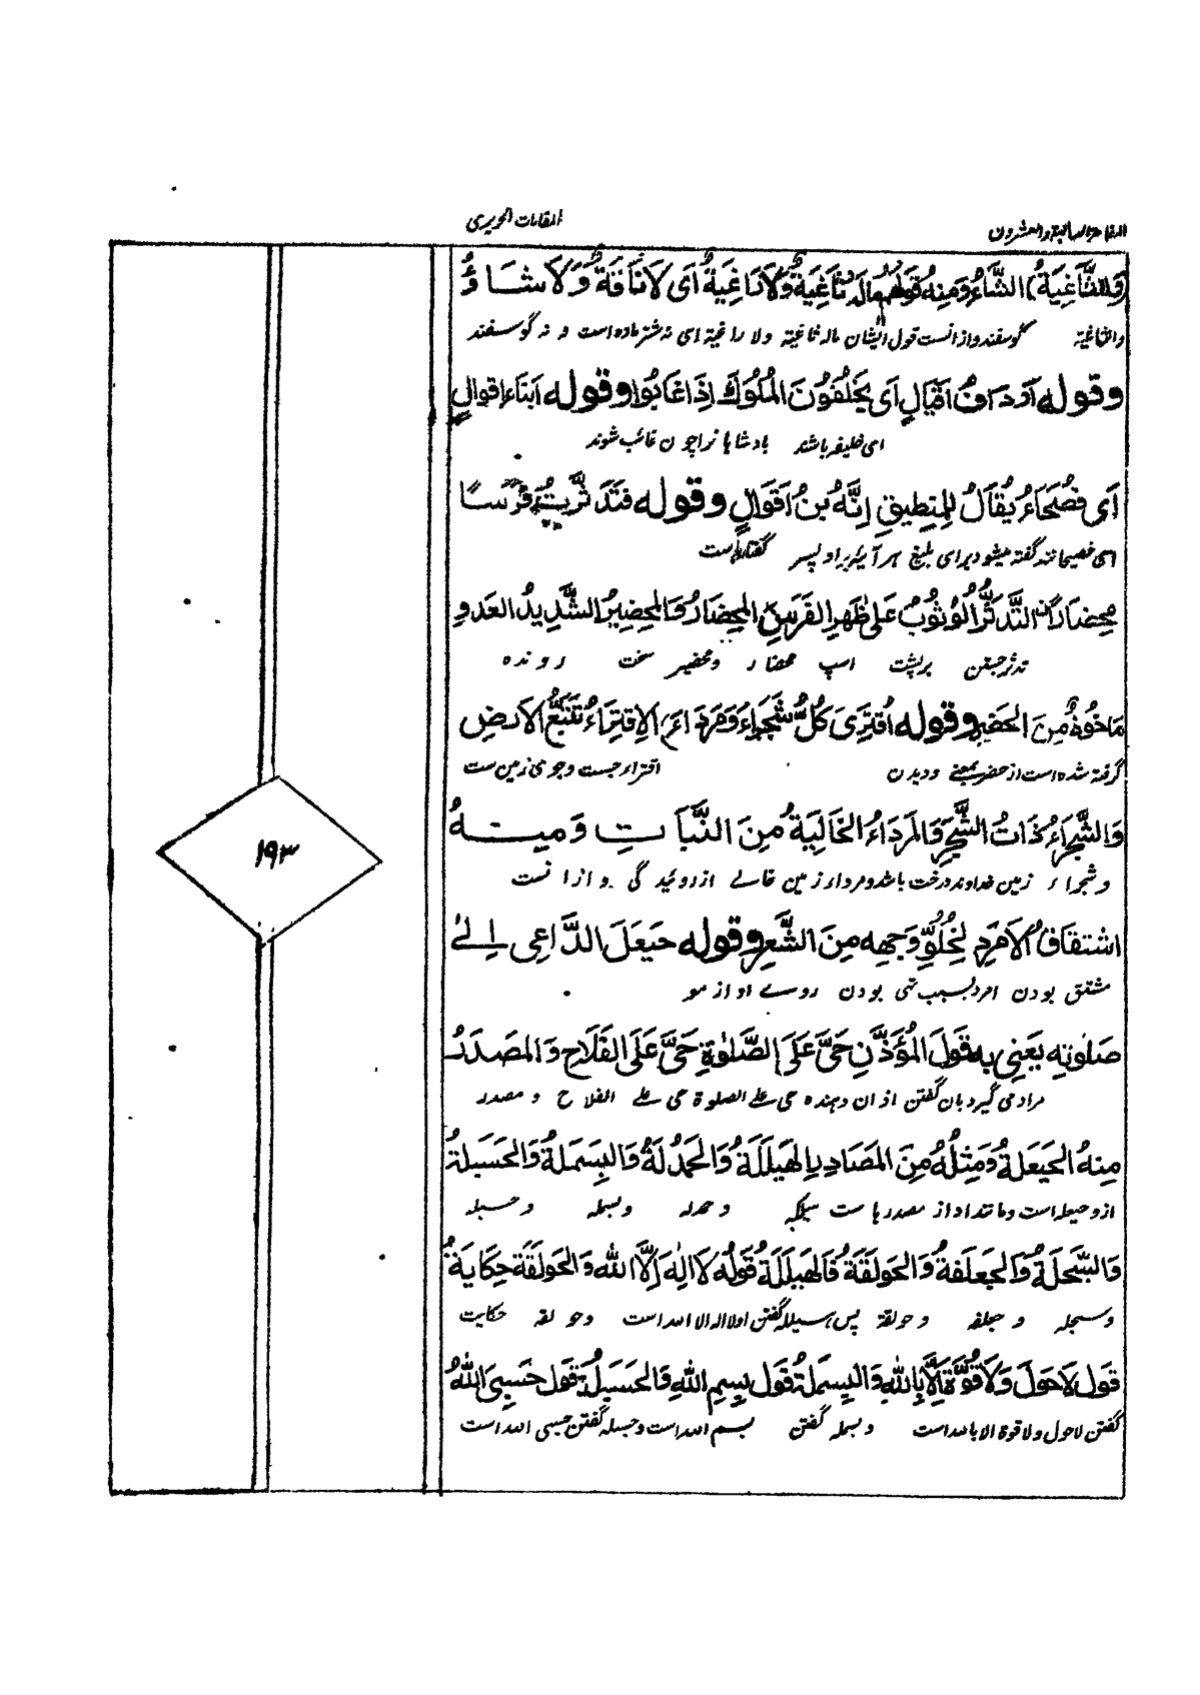 المقامات الحريرى
المقامة السابعة والعشرون
(وَالثَّاغِيَةُ) الشَّاءُ وَمِنْهُ قَوْلُهُمْ مَالَهُ ثَاغِيَةٌ وَّلَا رَاغِيَةٌ اَى لَا نَاقَةٌ وَّلَا شَاةٌ
والثاغية گوسفند و از انست قول ایشان ماله ثاغیته ولا راغیة ای نه شتر ماده است و نه گوسفند
وقوله اَرْدَافُ اَقْيَالٍ اَى يَخْلُفُوْنَ الْمُلُوْكَ اِذَا غَابُوْا وقوله اَبْنَاءُ اَقْوَالٍ
ای خلیفه باشند بادشاہا نرا چون غائب شوند
اَى فُصَحَاءُ يُقَالُ لِلْمِنْطِيْقِ اِنَّهُ بْنُ اَقْوَالٍ وقوله فَتَدَثَّرْتُ فَرَسًا
ای فصیحانند گفته میشود برای بلیغ ہر آئینه او پسر گفتارہاست
مِحْضَارًا التَّدَثُّرُ الْوُثُوْبُ عَلٰى ظَهْرِ الْفَرَسِ الْمِحْضَارُ وَالْمِحْضِيْرُ الشَّدِيْدُ الْعَدْوِ
تدثر جستن بر پشت اسپ محضار و محضیر سخت رونده
مَاخُوْذٌ مِّنَ الْحُضْرِ وقوله اَقْتَرِىْ كُلَّ شَجْرَاءَ وَمَرْدَاءَ اَلْاِقْتِرَاءُ تَتَبُّعُ الْاَرْضِ
گرفته شده است از حضر بمعنے دویدن اقتراء جست وجوی زمین ست
وَالشَّجْرَاءُ ذَاتُ الشَّجَرِ وَالْمَرْدَاءُ الْخَالِيَةُ مِنَ النَّبَاتِ وَمِنْهُ
وشجراء زمین خداوند درخت باشد و مرداء زمین خالے از روئیدگی و از انست
اشْتِقَاقُ الْاَمْرَدِ لِخُلُوِّ وَجْهِهٖ مِنَ الشَّعْرِ وقوله حَيْعَلَ الدَّاعِى اِلٰى
مشتق بودن امرد بسبب تہی بودن روے او از مو
صَلٰوتِهٖ يَعْنِى بِهٖ قَوْلَ الْمُؤَذِّنِ حَىَّ عَلَى الصَّلٰوةِ حَىَّ عَلَى الْفَلَاحِ وَالْمَصْدَرُ
مراد می گیرد بان گفتن اذان دہنده حی علے الصلوة حی علے الفلاح و مصدر
مِنْهُ الْحَيْعَلَةُ وَمِثْلُهُ مِنَ الْمَصَادِرِ الْهَيْلَلَةُ وَالْحَمْدَلَةُ وَالْبَسْمَلَةُ وَالْحَسْبَلَةُ
ازو حیعله است و مانند او از مصدرہا ست و حمدله و بسمله و حسبله
وَالسَّبْحَلَةُ وَالْجَعْلَفَةُ وَالْحَوْلَقَةُ فَالْهَيْلَلَةُ قَوْلُهُ لَا اِلٰهَ اِلَّا اللّٰهُ وَالْحَوْلَقَةُ حِكَايَةُ
و سبحله و جعلفه و حولقة پس ہیلله گفتن او لااله الا الله است و حولقه حکایت
قَوْلِ لَاحَوْلَ وَلَا قُوَّةَ اِلَّا بِاللّٰهِ وَالْبَسْمَلَةُ قَوْلُ بِسْمِ اللّٰهِ وَالْحَسْبَلَةُ قَوْلُ حَسْبِىَ اللّٰهُ
گفتن لا حول ولا قوة الا بالله است و بسمله گفتن بسم الله است و حسبله گفتن حسبی الله است
١٩٣